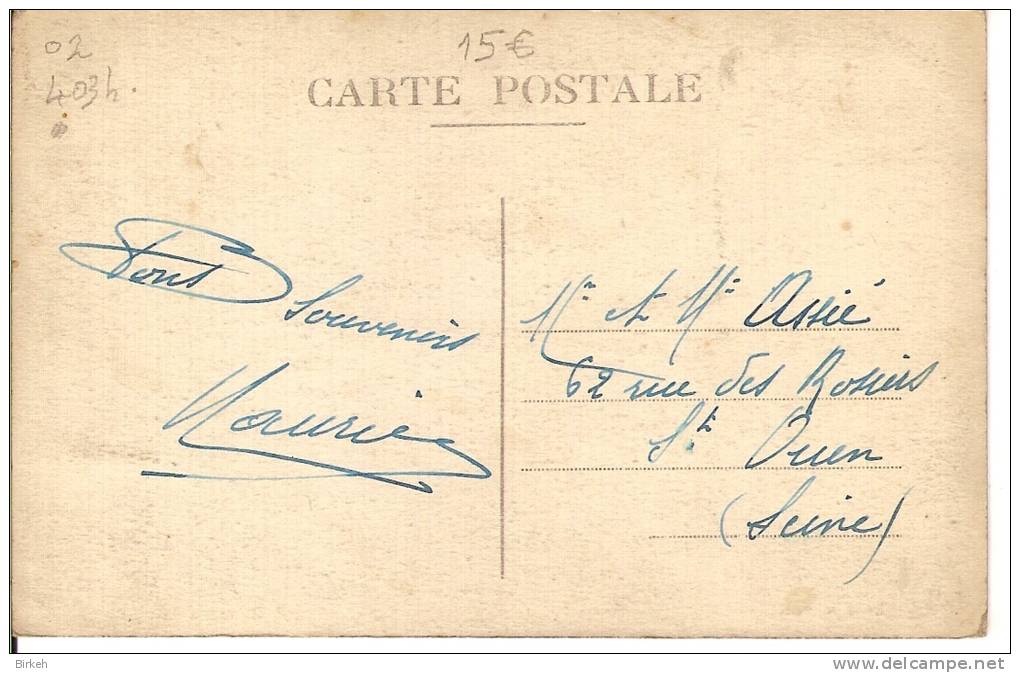 02
403h.
15€
CARTE POSTALE
Souvenirs
Maurice
Mr et Me Assié
62 rue des Rosiers
St Ouen
(Seine)
Birkeh
www.delcampe.net